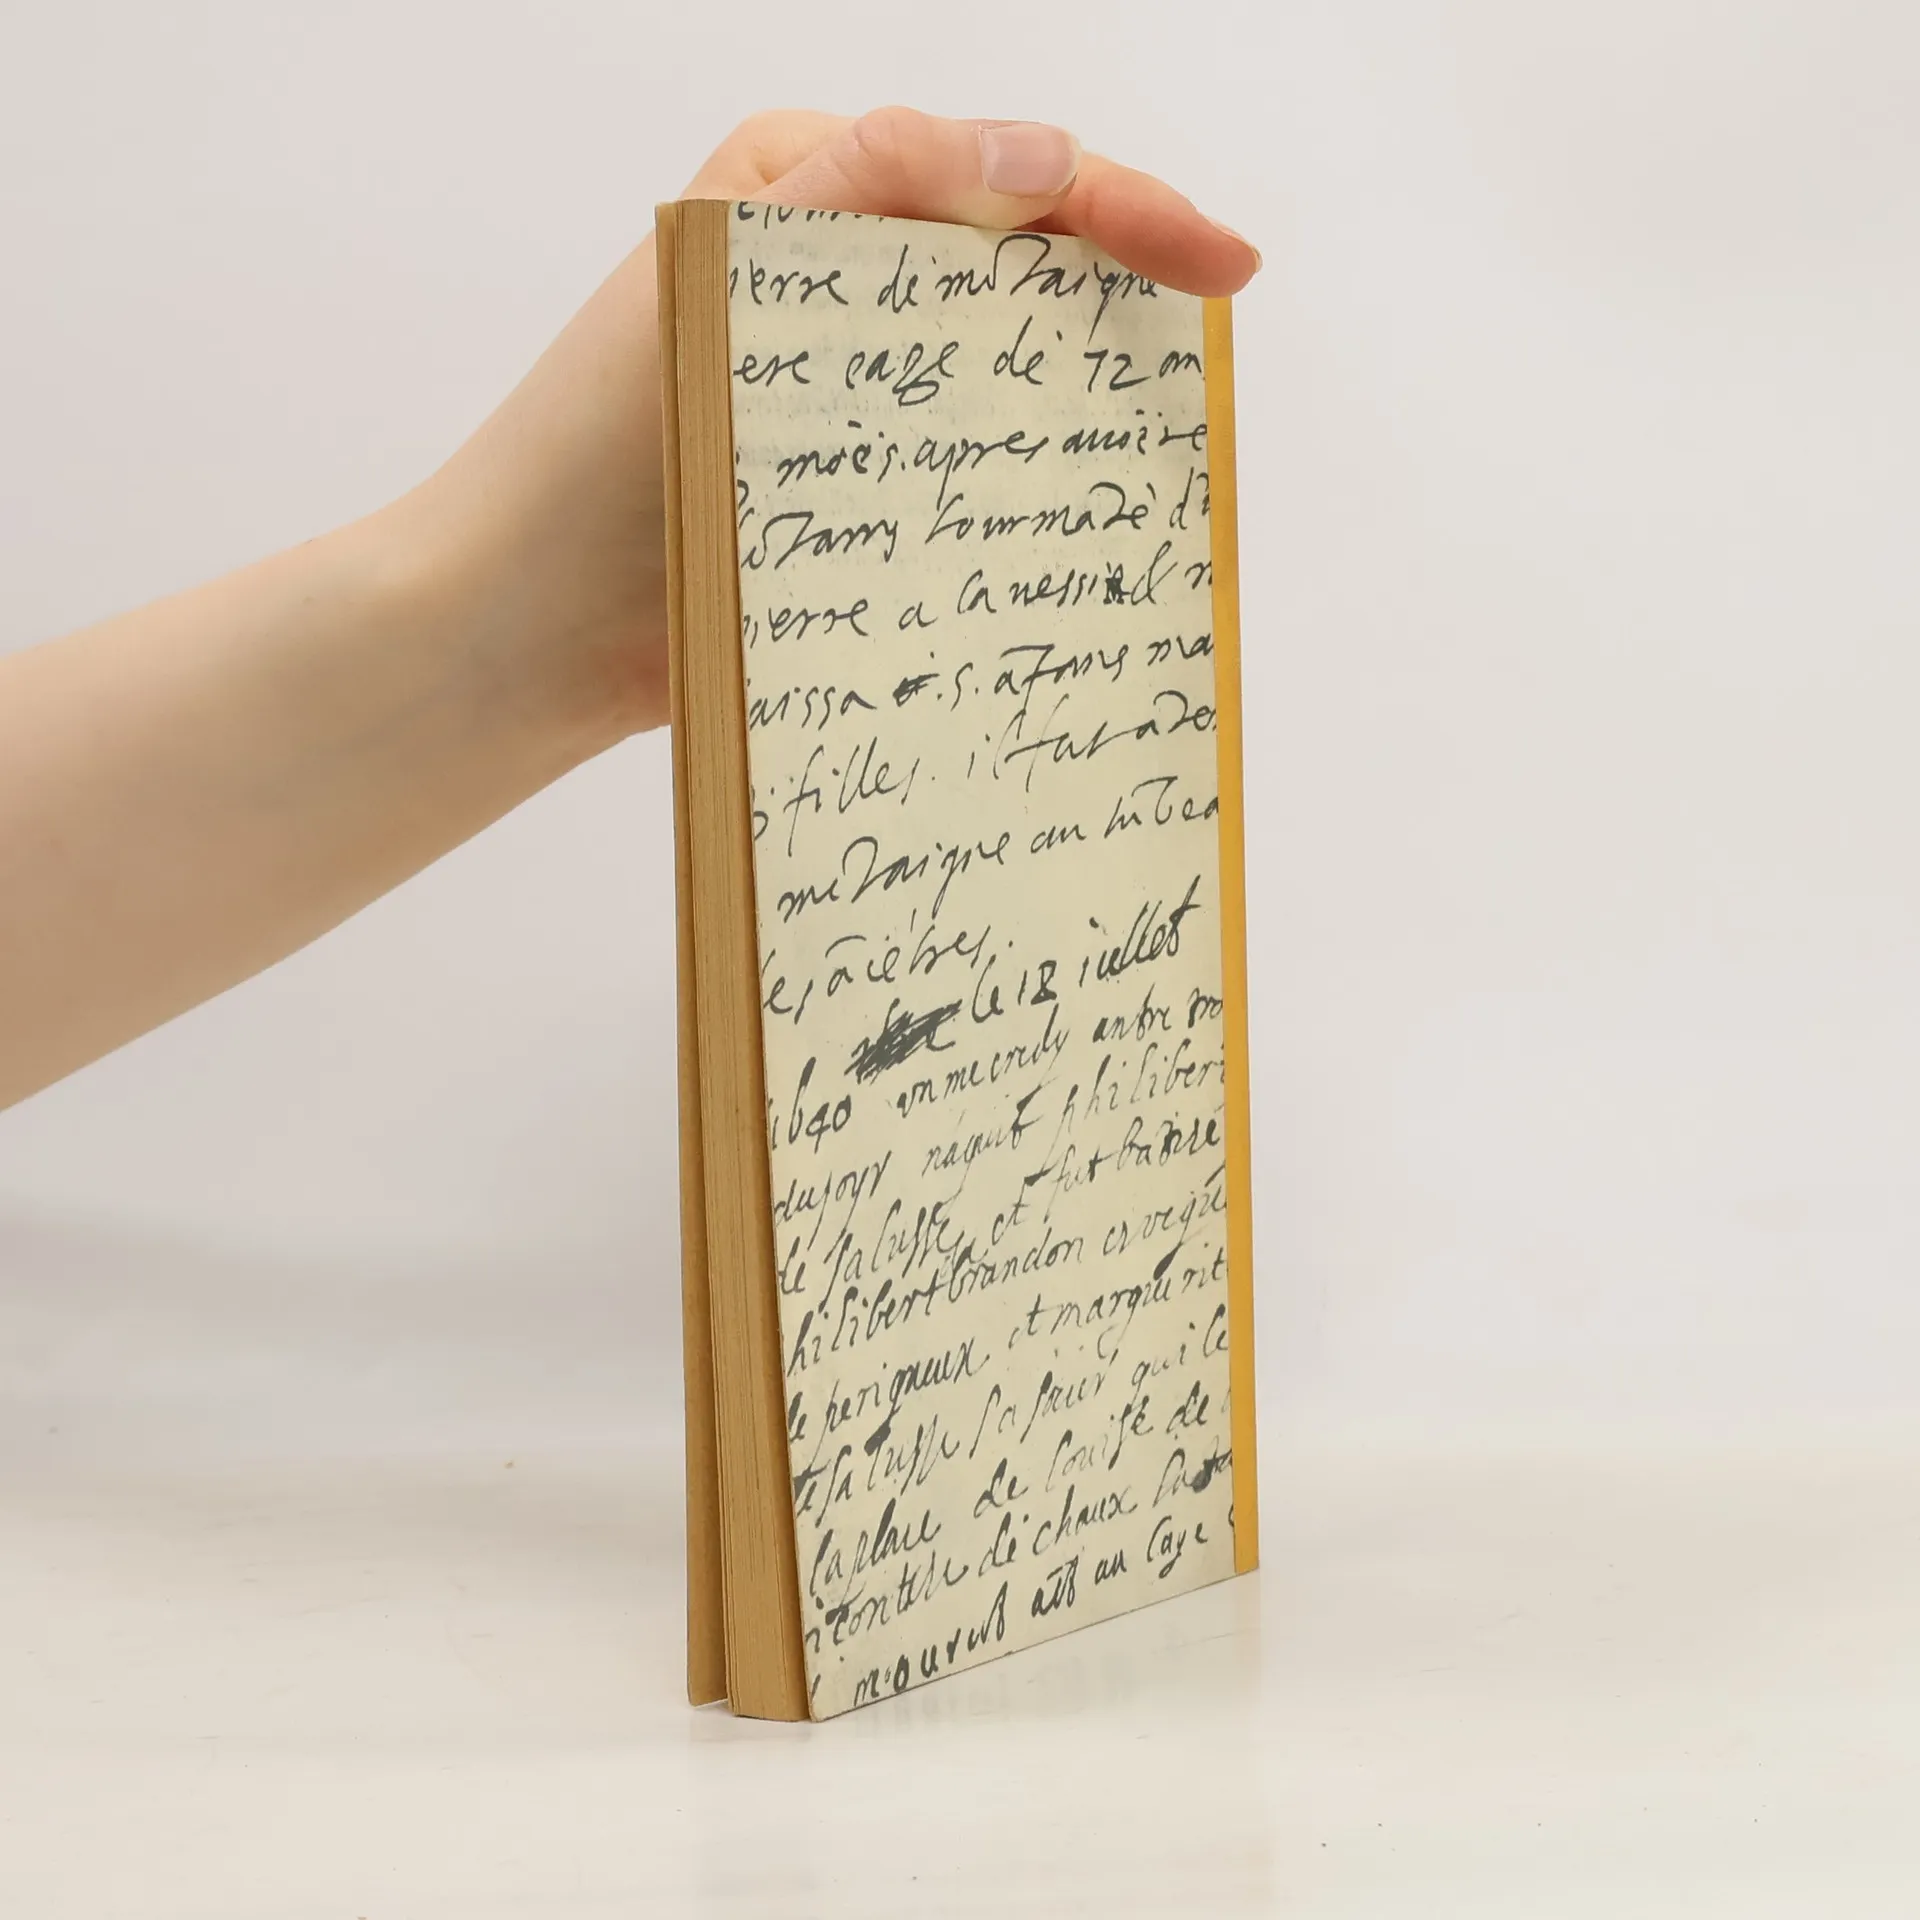 ierre de mōtaigne
ere eage de 72 an
3 mōes. apres auoir
tourmāté d'u
ierre a la vessie & n
aissa 5. āfans ma
3 filles. il fut āter
mōtaigne au tūbea
es ācētres.
le 18 iullet
1640 un mecredy antre
du jour naquit philibert
de salusse et fut batizé
hilibert brandon
de perigueux et marguerit
de salusse sa seur qui le
la place de louise de
icontesse de chaux
mourut au